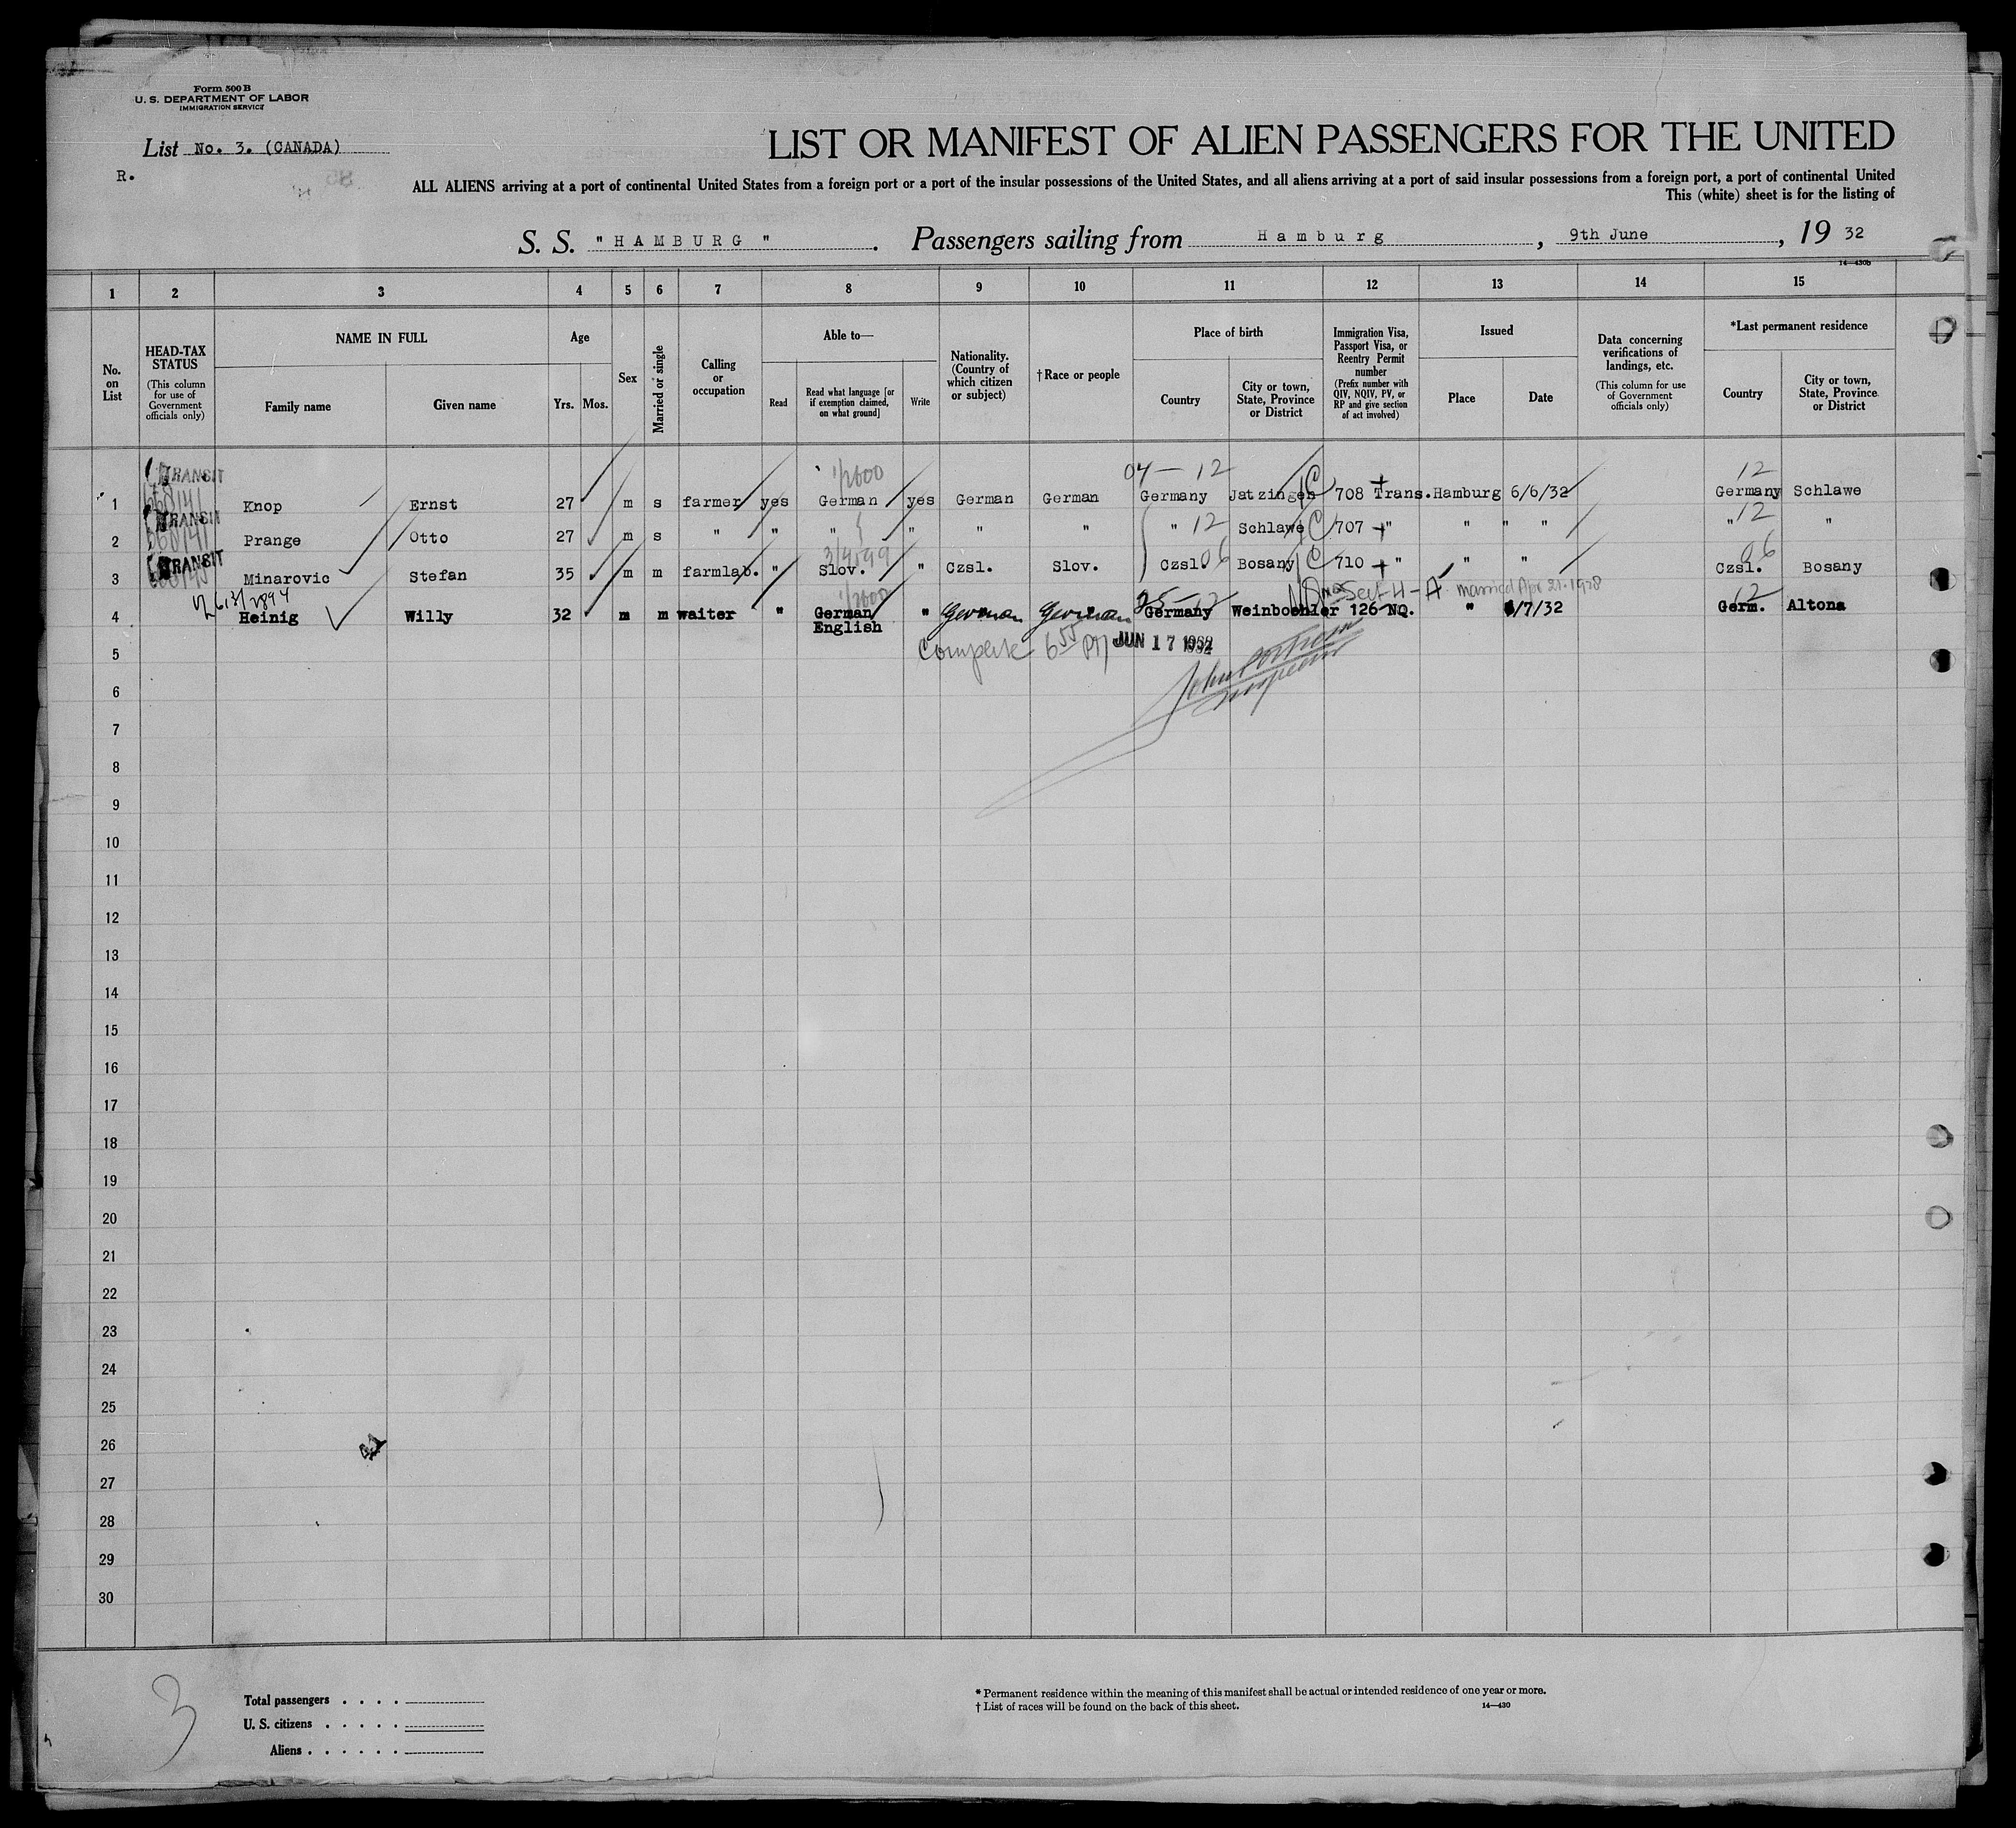 Form 500 B
U. S. DEPARTMENT OF LABOR
IMMIGRATION SERVICE
List No. 3. (CANADA)
R.
LIST OR MANIFEST OF ALIEN PASSENGERS FOR THE UNITED
ALL ALIENS arriving at a port of continental United States from a foreign port or a port of the insular possessions of the United States, and all aliens arriving at a port of said insular possessions from a foreign port, a port of continental United
This (white) sheet is for the listing of
S. S. "HAMBURG". Passengers sailing from Hamburg, 9th June, 19 32
14—430b
1 2 3 4 5 6 7 8 9 10 11 12 13 14 15
No. on List
HEAD-TAX STATUS (This column for use of Government officials only)
NAME IN FULL Family name Given name
Age Yrs. Mos.
Sex
Married or single
Calling or occupation
Able to— Read Read what language [or if exemption claimed, on what ground] Write
Nationality. (Country of which citizen or subject)
†Race or people
Place of birth Country City or town, State, Province or District
Immigration Visa, Passport Visa, or Reentry Permit number (Prefix number with QIV, NQIV, PV, or RP and give section of act involved)
Issued Place Date
Data concerning verifications of landings, etc. (This column for use of Government officials only)
*Last permanent residence Country City or town, State, Province or District
TRANSIT 1/2600 04 — 12 12
1 Knop Ernst 27 m s farmer yes German yes German German Germany Jatzingen C 708 Trans. Hamburg 6/6/32 Germany Schlawe
TRANSIT
2 Prange Otto 27 m s " " " " " " " 12 Schlawe C 707 " " " " " 12 "
TRANSIT
3 Minarovic Stefan 35 m m farmlab. " Slov. " Czsl. Slov. Czsl. 06 Bosany C 710 " " " Czsl. 06 Bosany
Sect 4 - A married Apr 21-1928
4 Heinig Willy 32 m m waiter " German English " German German Germany Weinboehler 126 NQ. " /7/32 Germ. 12 Altona
5 Complete 6 55 PM JUN 17 1932
Inspector
6
7
8
9
10
11
12
13
14
15
16
17
18
19
20
21
22
23
24
25
26
27
28
29
30
3
Total passengers . . . .
U. S. citizens . . . . .
Aliens . . . . . .
* Permanent residence within the meaning of this manifest shall be actual or intended residence of one year or more.
† List of races will be found on the back of this sheet.
14—430